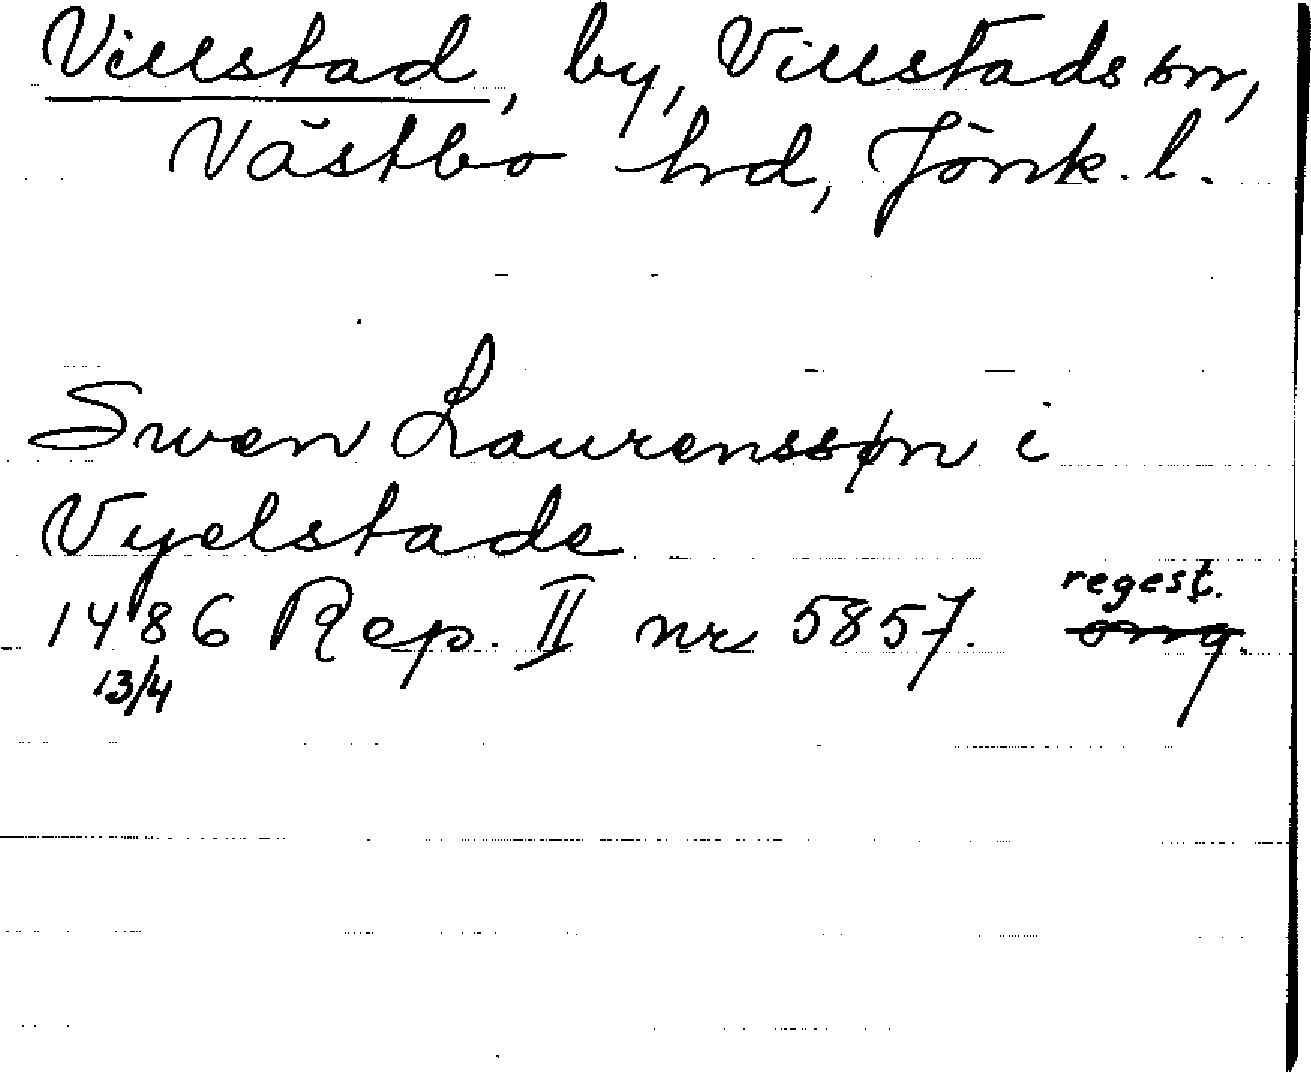 Villstad, by, Villstads sn,
Västbo hd, Jönk. l.
Swen Laurenssøn i
Vyelstade
1486 Rep. II nr 5857. regest.
13/4